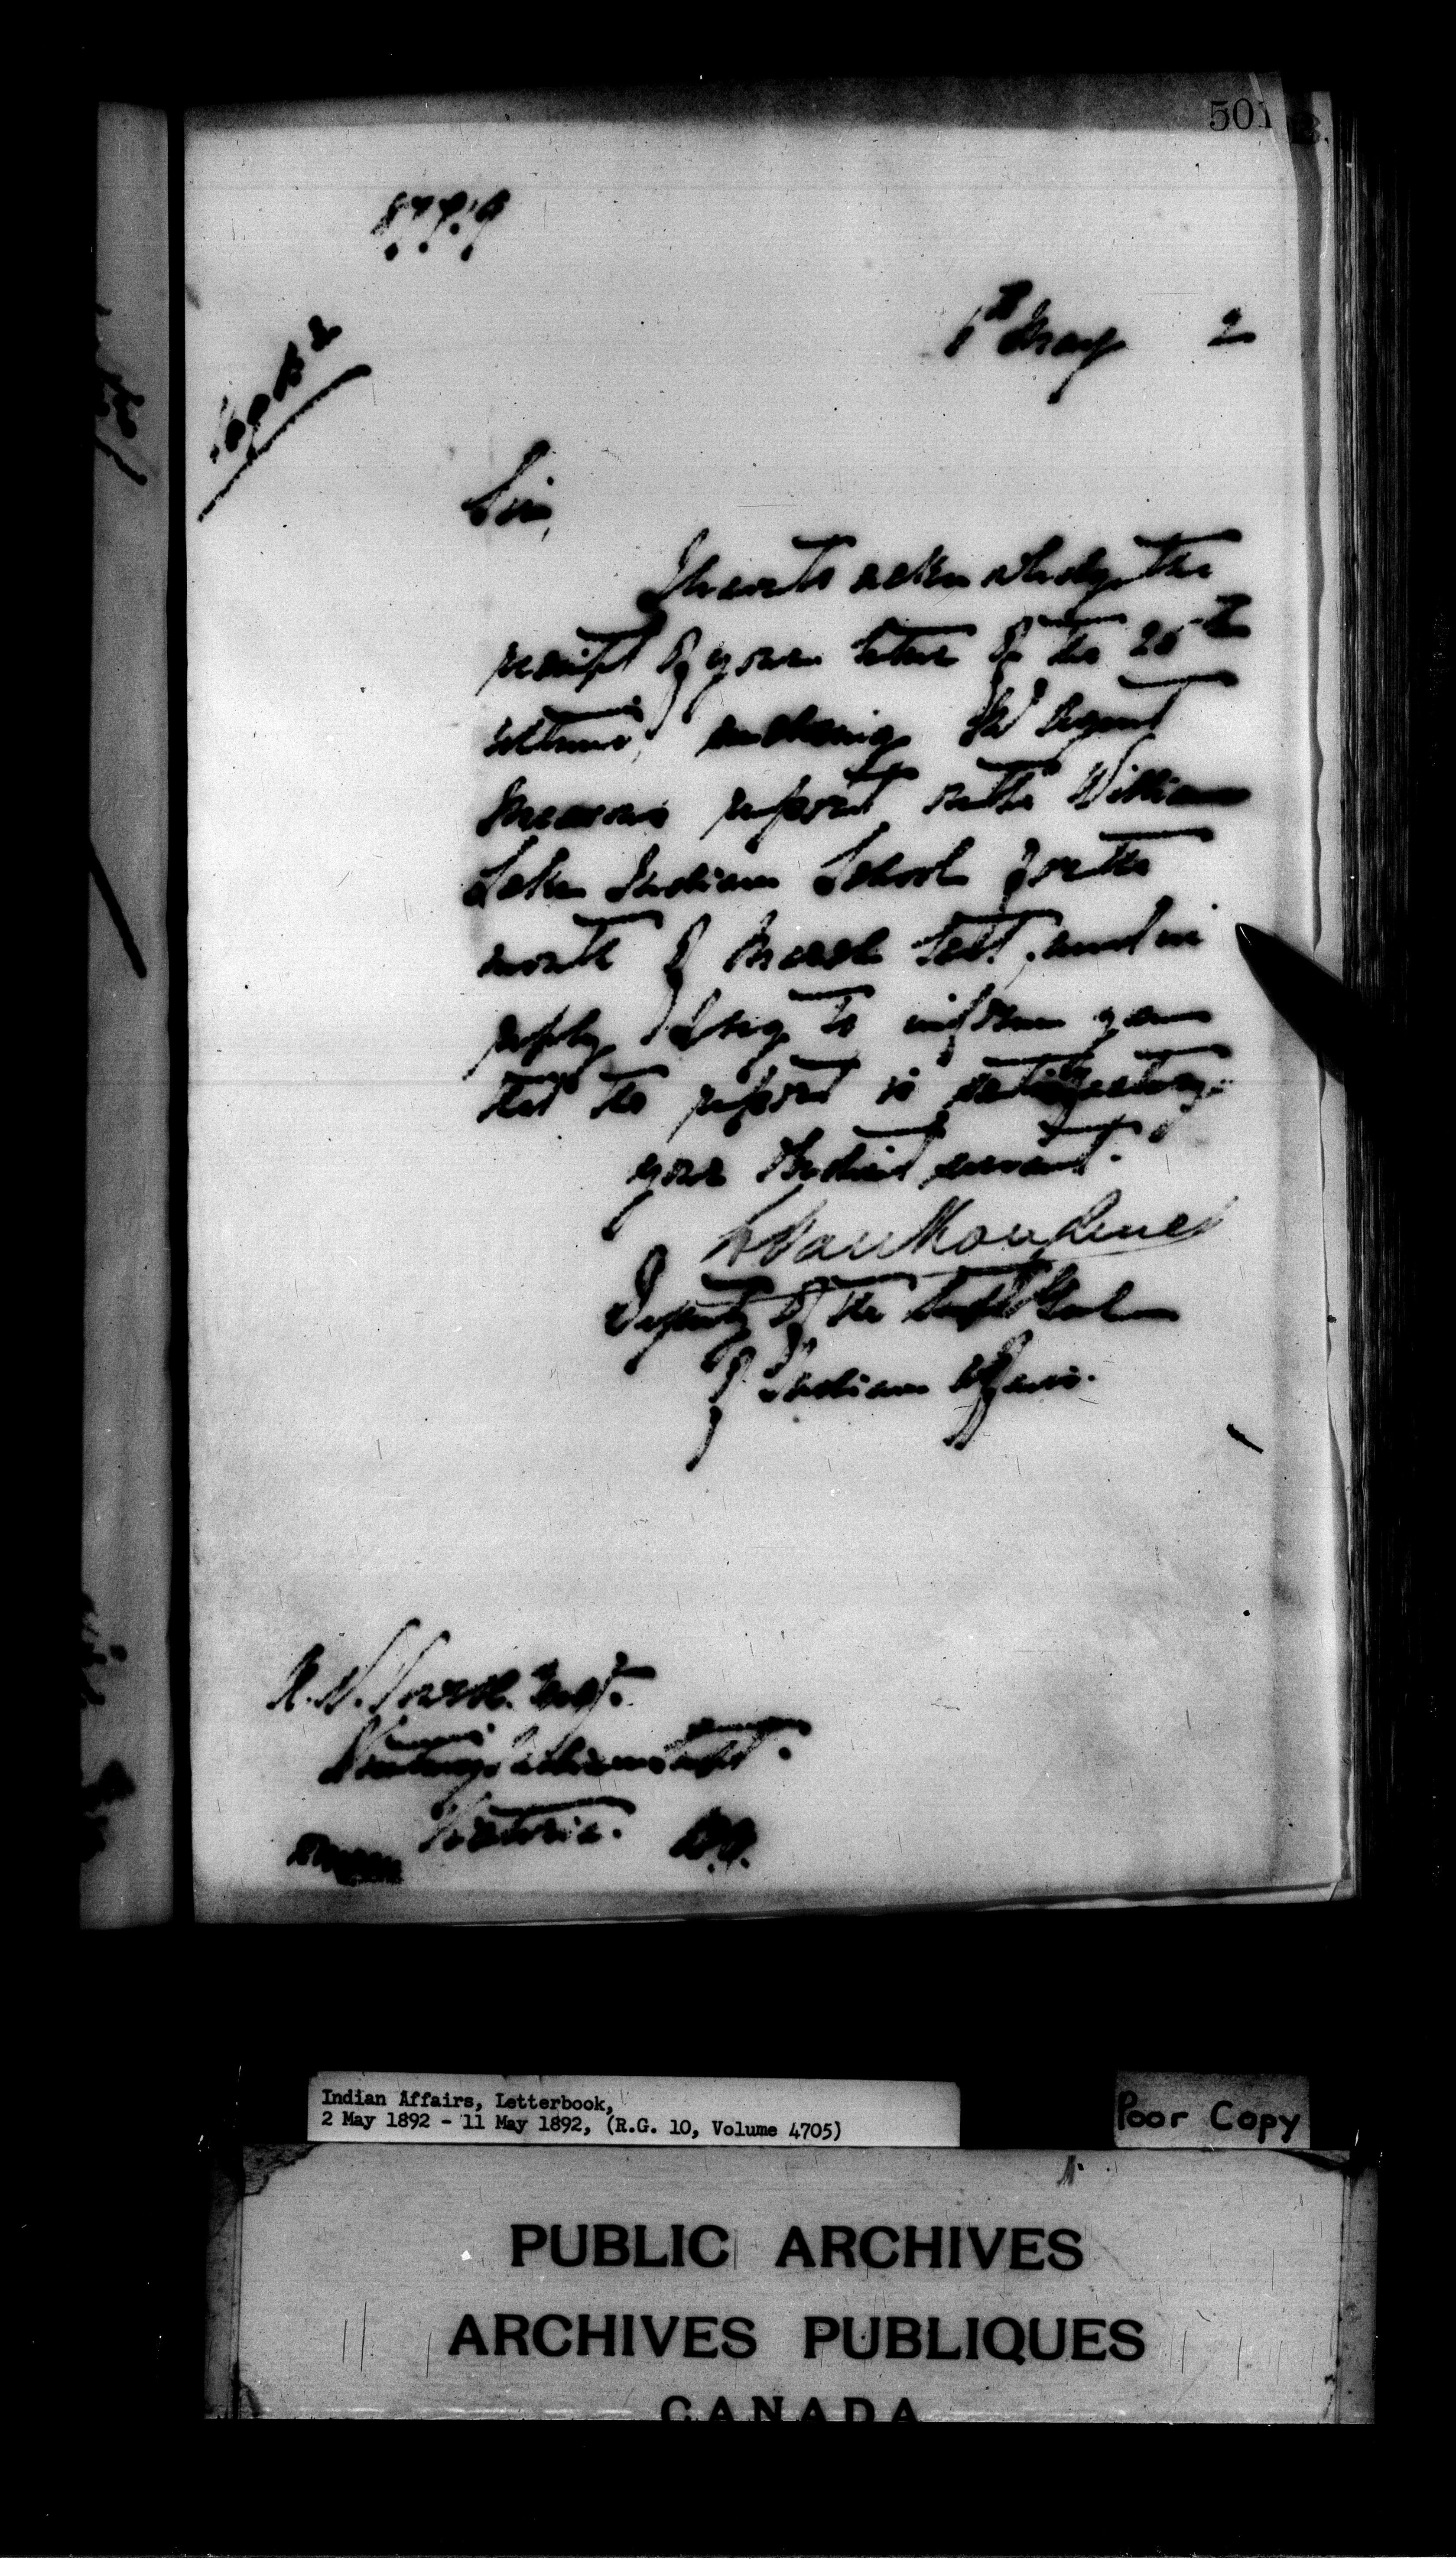 501
6th May 2
Sir,
I have to acknowledge the
receipt of your letter of the 26th
ultimo, enclosing Mr Agent
Meason's report on the Williams
Lake Indian School for the
month of March last, and in
reply I beg to inform you
that the report is satisfactory.
Your obedient servant.
L Vankoughnet
Deputy of the Supt Genl
of Indian Affairs.
A. W. Vowell. Esq.
Visiting Indian Supt.
Victoria. B.C.
Indian Affairs, Letterbook,
2 May 1892 - 11 May 1892, (R.G. 10, Volume 4705)
Poor Copy
PUBLIC ARCHIVES
ARCHIVES PUBLIQUES
CANADA